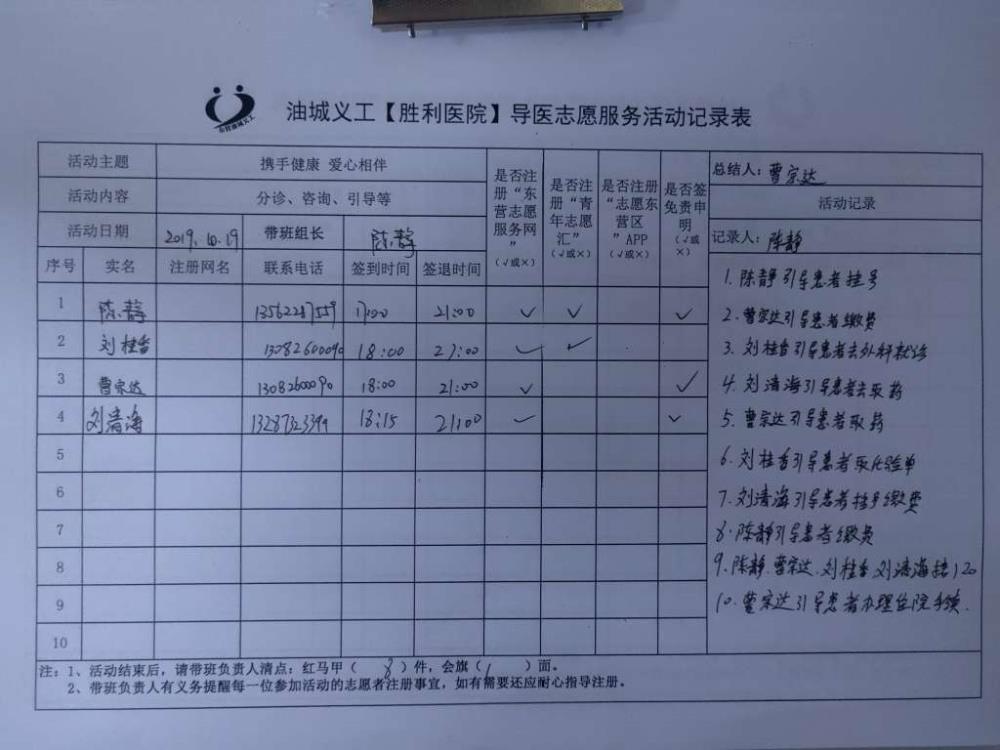 油城义工【胜利医院】导医志愿服务活动记录表
活动主题 携手健康 爱心相伴
活动内容 分诊、咨询、引导等
活动日期 2019.10.19 带班组长 陈静
序号 实名 注册网名 联系电话 签到时间 签退时间
是否注册“东营志愿服务网”(√或×)
是否注册“青年志愿汇”(√或×)
是否注册“志愿东营区”APP(√或×)
是否签免责申明(√或×)
1 陈静 13562287559 17:00 21:00 √ √ √
2 刘桂香 13082600090 18:00 21:00 √ √
3 曹宗达 13082600090 18:00 21:00 √ √
4 刘清海 13287323399 18:15 21:00 √ √
5
6
7
8
9
10
总结人:曹宗达
活动记录
记录人:陈静
1.陈静引导患者挂号
2.曹宗达引导患者缴费
3.刘桂香引导患者去外科就诊
4.刘清海引导患者去取药
5.曹宗达引导患者取药
6.刘桂香引导患者取化验单
7.刘清海引导患者挂号缴费
8.陈静引导患者缴费
9.陈静.曹宗达.刘桂香.刘清海接120
10.曹宗达引导患者办理住院手续.
注:1、活动结束后,请带班负责人清点:红马甲( 8 )件,会旗( 1 )面。
2、带班负责人有义务提醒每一位参加活动的志愿者注册事宜,如有需要还应耐心指导注册。